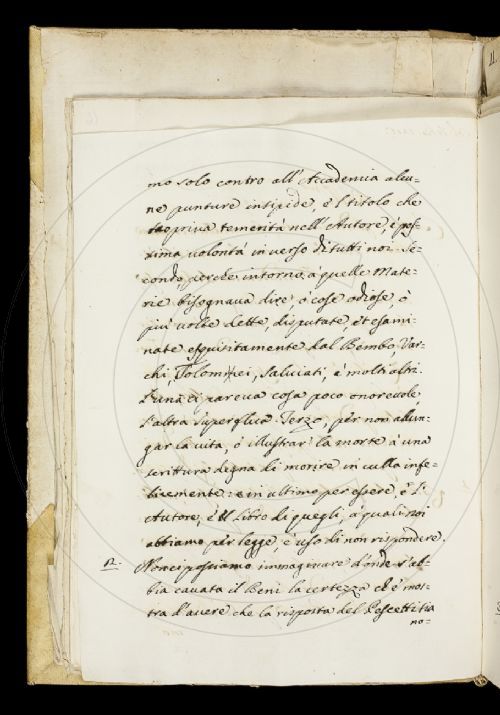 mo solo contro all'Accademia alcu-
ne punture insipide, e 'l titolo che
scopriva temerità nell'Autore, e pes-
sima volontà inverso di tutti noi. Se-
condo, perche intorno à quelle Mate-
rie bisognava dire ò cose odiose ò
più volte dette, disputate, et esami-
nate esquisitamente dal Bembo, Var-
chi, Tolomei, Salviati, e molti altri.
L'una ci pareva cosa poco onorevole
l'altra superflua. Terzo, per non allun-
gar la vita, ò illustrar la morte à una
scrittura degna di morire in culla infe-
licemente: e in ultimo per essere, e l'
Autore, e il Libro di quegli, à quali noi
abbiamo per legge, e uso di non rispondere.
2. Non ci possiamo immaginare d'onde s'ab-
bia cavata il Beni la certezza che mos-
tra d'avere che la risposta del Pescetti sia
no-